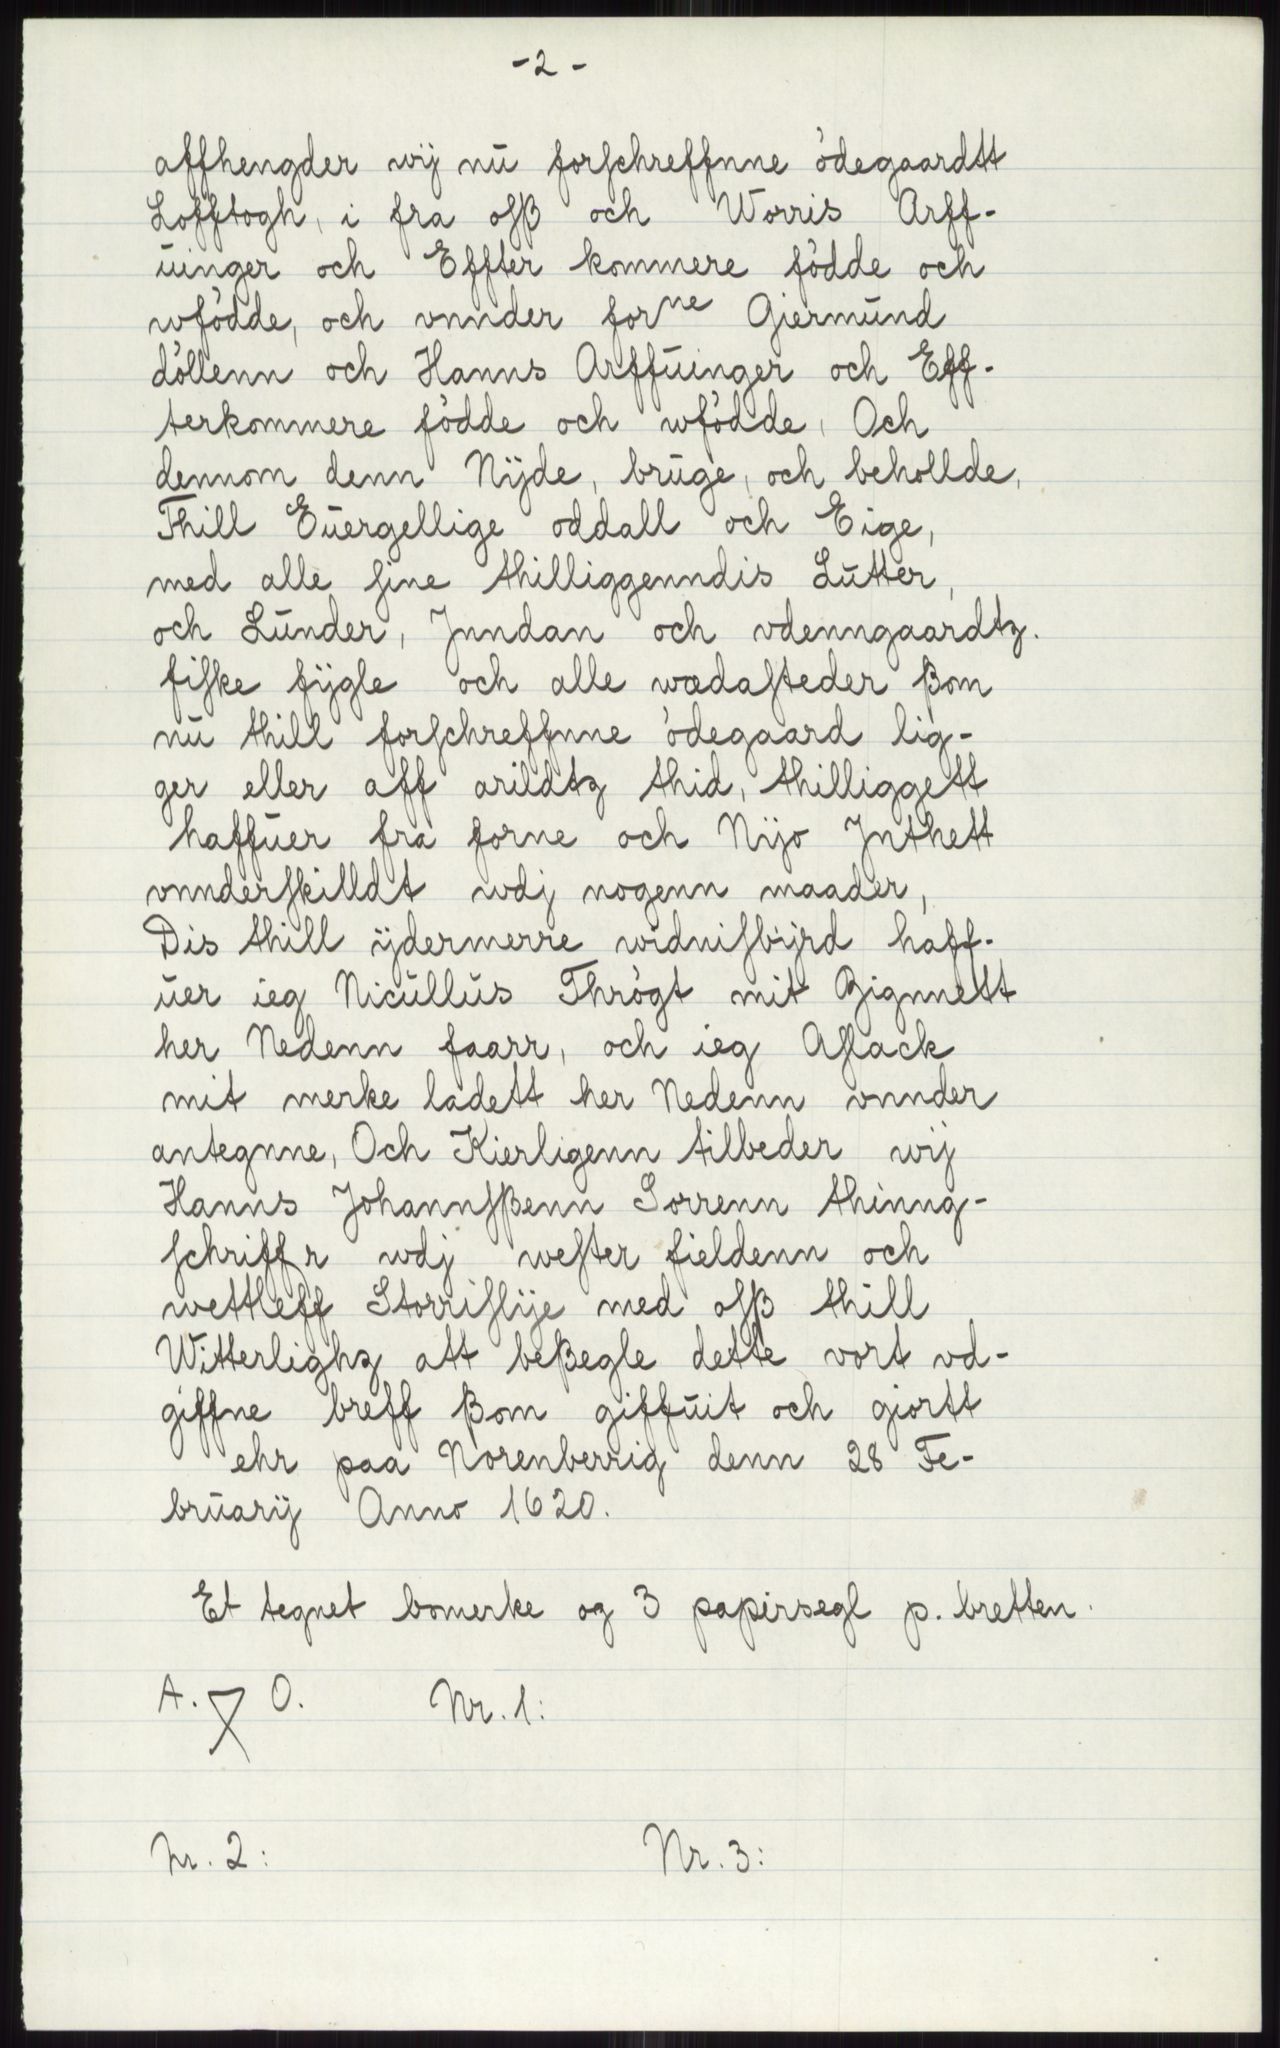 -2-
affhengder wij nū forschreffnne ödegaardtt
Lofftogh, i fra ofß och Worris Arff-
ūinger och Effter kommere födde och
wfödde, och vnnder forne Giermūnd
döllenn och Hanns Arffūinger och Eff-
terkommere födde och wfödde, Och
dennom denn Nÿde, brūge, och behollde,
Thill Eūergellige oddall och Eige,
med alle sine thilliggenndis Lūtter,
och Lūnder, Jnndan och vdenngaardtz.
fiske fÿgle och alle wædasteder ßom
nū thill forschreffnne ödegaard lig-
ger eller aff arildtz thid, thilliggett
haffūer fra forne och Nijo Jnthett
vnnderskilldt wdj nogenn maader,
Dis thill ÿdermerre widnisbÿrd haff-
ūer ieg Nicūllūs Thrögt mit Zignnett
her Nedenn faarr, och ieg Aslack
mit merke ladett her Nedenn vnnder
antegnne, Och Kierligenn tilbeder wij
Hanns Johannsßenn Sorrenn thinng-
schriffr wdj wester fieldenn och
wettleff Storrislije med ofß thill
Witterlighz att beßegle dette vort vd-
giffne breff ßom giffūit och giortt
ehr paa Norenberrig denn 28 Fe-
brūarij Anno 1620.
Et tegnet bomerke og 3 papirsegl p. bretten.
A. O. Nr. 1:
Nr. 2: Nr. 3: